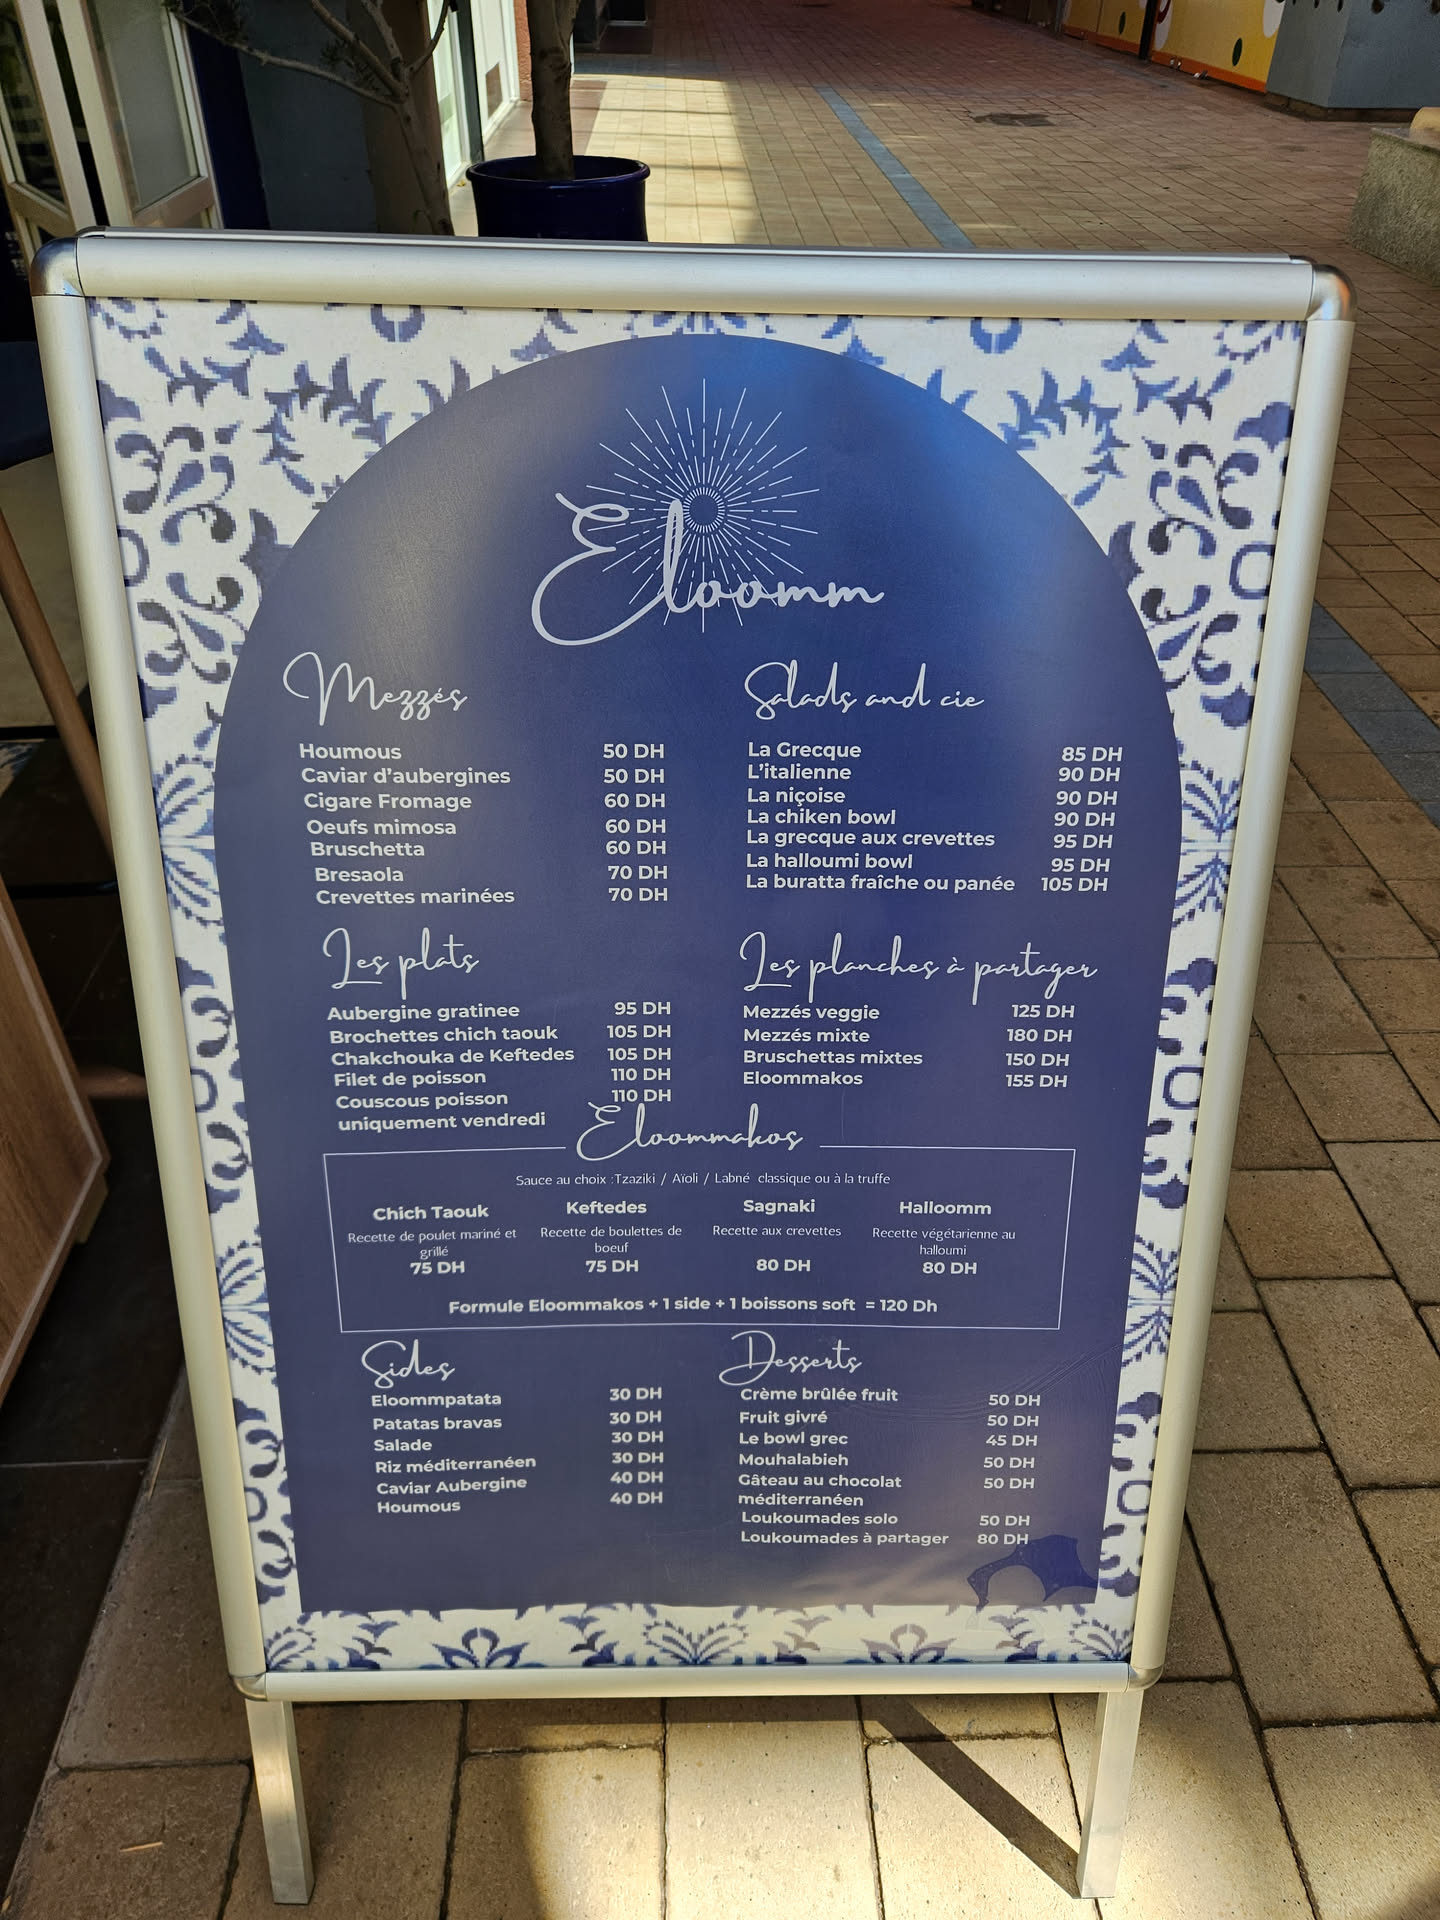 Eloomm
Mezzés
Houmous 50 DH
Caviar d'aubergines 50 DH
Cigare Fromage 60 DH
Oeufs mimosa 60 DH
Bruschetta 60 DH
Bresaola 70 DH
Crevettes marinées 70 DH
Salads and cie
La Grecque 85 DH
L'italienne 90 DH
La niçoise 90 DH
La chiken bowl 90 DH
La grecque aux crevettes 95 DH
La halloumi bowl 95 DH
La buratta fraîche ou panée 105 DH
Les plats
Aubergine gratinee 95 DH
Brochettes chich taouk 105 DH
Chakchouka de Keftedes 105 DH
Filet de poisson 110 DH
Couscous poisson 110 DH
uniquement vendredi
Les planches à partager
Mezzés veggie 125 DH
Mezzés mixte 180 DH
Bruschettas mixtes 150 DH
Eloommakos 155 DH
Eloommakos
Sauce au choix :Tzaziki / Aïoli / Labné classique ou à la truffe
Chich Taouk
Recette de poulet mariné et
grillé
75 DH
Keftedes
Recette de boulettes de
boeuf
75 DH
Sagnaki
Recette aux crevettes
80 DH
Halloomm
Recette végétarienne au
halloumi
80 DH
Formule Eloommakos + 1 side + 1 boissons soft = 120 Dh
Sides
Eloommpatata 30 DH
Patatas bravas 30 DH
Salade 30 DH
Riz méditerranéen 30 DH
Caviar Aubergine 40 DH
Houmous 40 DH
Desserts
Crème brûlée fruit 50 DH
Fruit givré 50 DH
Le bowl grec 45 DH
Mouhalabieh 50 DH
Gâteau au chocolat 50 DH
méditerranéen
Loukoumades solo 50 DH
Loukoumades à partager 80 DH